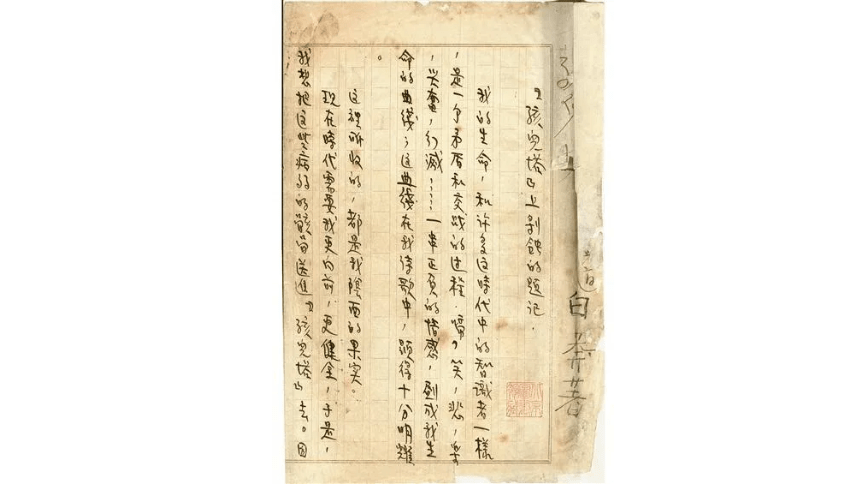 白莽著
『孩兒塔』上剝蝕的題記.
我的生命,和许多这時代中的智識者一樣
,是一个矛盾和交战的过程,啼,笑,悲,樂
,兴奮,幻滅,……一串正負的情感,劃成我生
命的曲綫;这曲綫在我诗歌中,顕得十分明耀
。
这裡所收的,都是我陰面的果实。
现在時代需要我更向前,更健全,于是,
我想把这些病弱的骸骨送進『孩兒塔』去。因